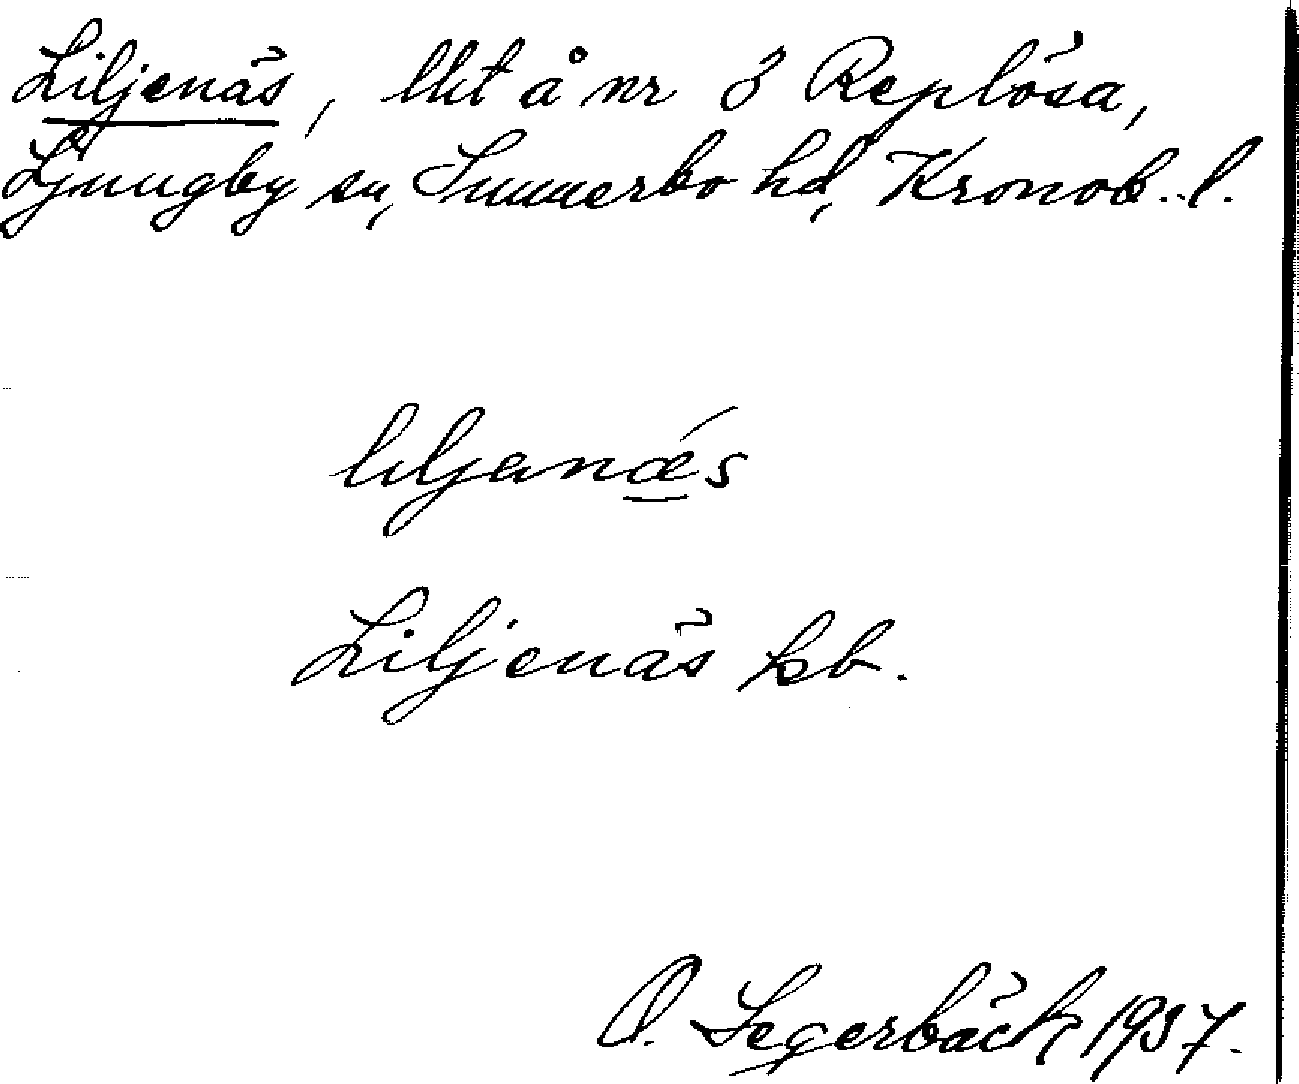 Liljenäs, lht å nr 3 Replösa,
Ljungby sn, Sunnerbo hd, Kronob. l.
liljanǽs
Liljenäs kb.
O. Segerbäck 1937.